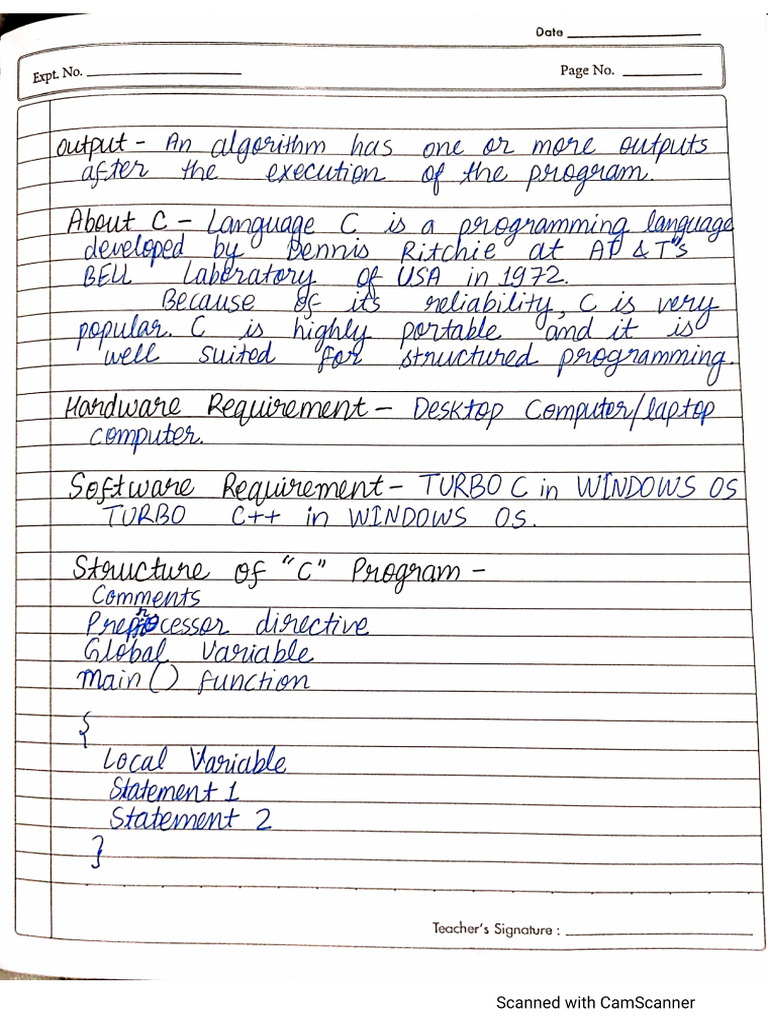 Date
Expt. No.
Page No.
Output - An algorithm has one or more outputs
after the execution of the program.
About C - Language C is a programming language
developed by Dennis Ritchie at AT & T's
BELL Laboratory of USA in 1972.
Because of its reliability, C is very
popular. C is highly portable and it is
well suited for structured programming.
Hardware Requirement - Desktop Computer/laptop
computer.
Software Requirement - TURBO C in WINDOWS OS
TURBO C++ in WINDOWS OS.
Structure of "C" Program -
Comments
Preprocessor directive
Global Variable
main() function
{
Local Variable
Statement 1
Statement 2
}
Teacher's Signature :
Scanned with CamScanner